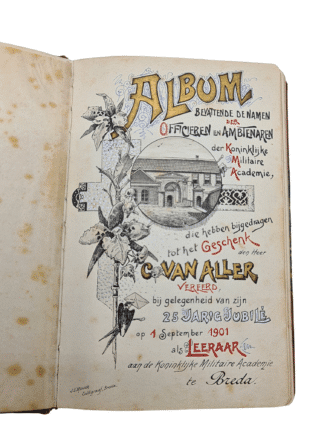 ALBUM
BEVATTENDE DE NAMEN
DER
OFFICIEREN EN AMBTENAREN
der Koninklijke
Militaire
Academie,
die hebben bijgedragen
tot het Geschenk
den Heer
C. VAN ALLER
VEREERD,
bij gelegenheid van zijn
25 JARIG JUBILÉ
op 1 September 1901
als LEERAAR
aan de Koninklijke Militaire Academie
te Breda.